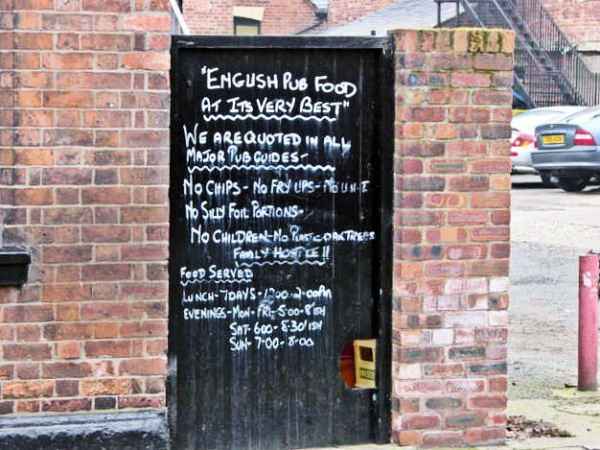 "ENGLISH PUB FOOD
AT ITS VERY BEST"
WE ARE QUOTED IN ALL
MAJOR PUB GUIDES-
NO CHIPS - NO FRY UPS - NO
NO SILLY FOIL PORTIONS-
NO CHILDREN - NO PLASTIC
FAMILY HOSTILE!!
FOOD SERVED
LUNCH - 7 DAYS - 12.00-2.00PM
EVENINGS - MON - FRI - 5:00 - 8'ISH
SAT - 6:00 - 8:30'ISH
SUN - 7:00 - 8:00